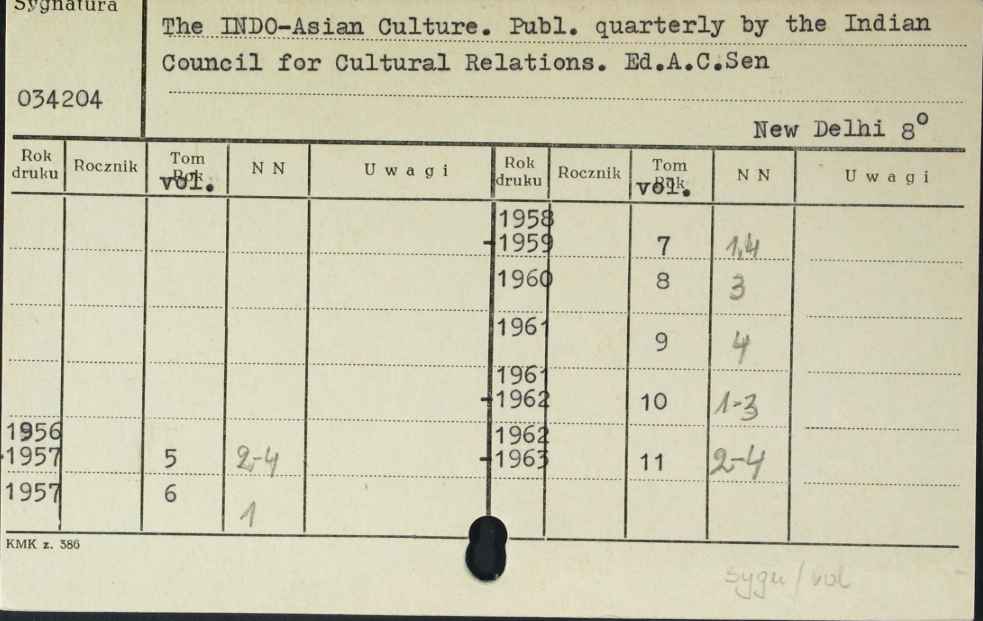 Sygnatura
The INDO-Asian Culture. Publ. quarterly by the Indian
Council for Cultural Relations. Ed.A.C.Sen
034204
New Delhi 8°
Rok druku Rocznik Tom Rok vol. N N U w a g i Rok druku Rocznik Tom Rok vol. N N U w a g i
1958
-1959 7 1,4
1960 8 3
1961 9 4
1961
-1962 10 1-3
1956 1962
-1957 5 2-4 -1963 11 2-4
1957 6 1
KMK z. 386
sygn/vol